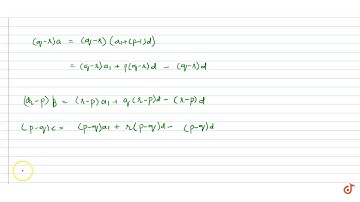 (q-r)a = (q-r)(a₁+(p-1)d)
= (q-r)a₁ + p(q-r)d - (q-r)d
(r-p)b = (r-p)a₁ + q(r-p)d - (r-p)d
(p-q)c = (p-q)a₁ + r(p-q)d - (p-q)d